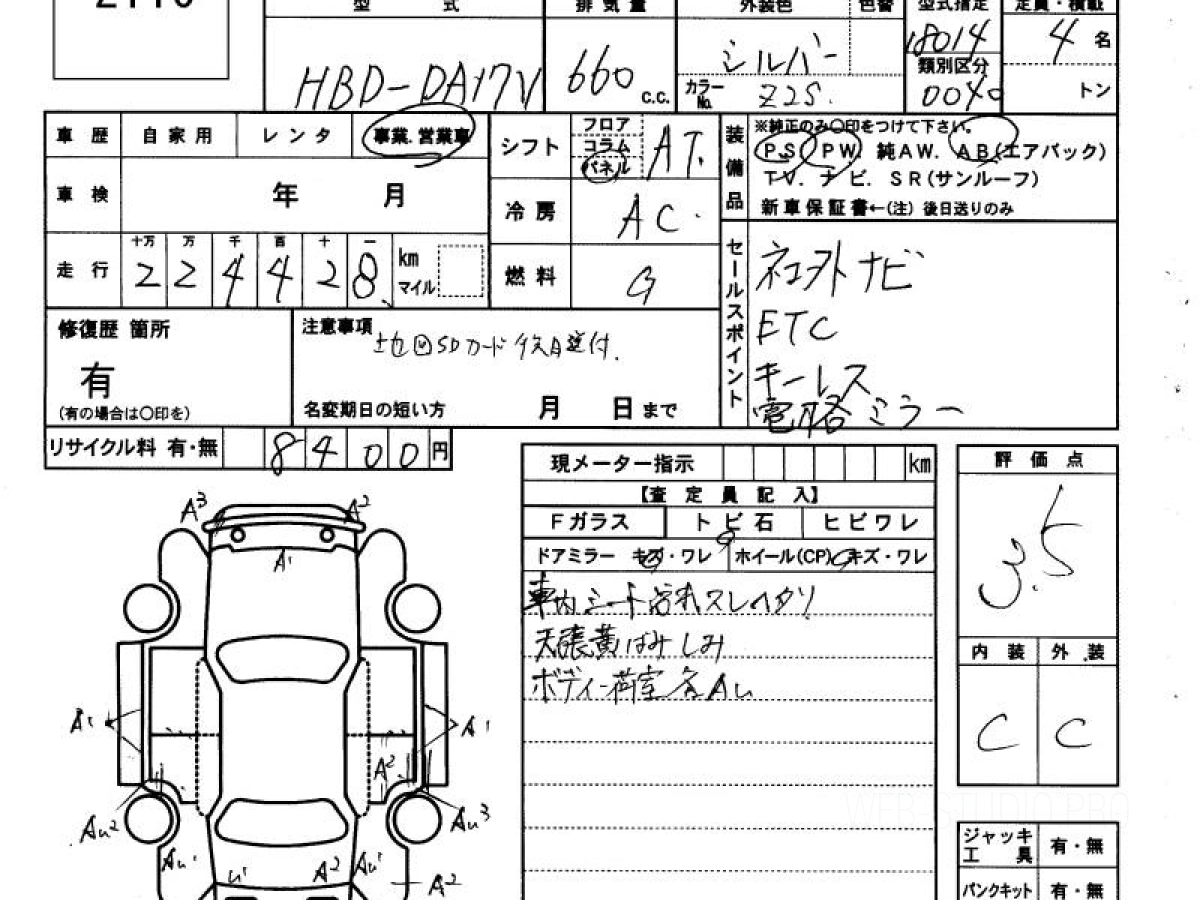 型 式
排気量
外装色
色替
型式指定
定員・積載
HBD-DA17V
660 c.c.
シルバー
カラーNo. Z2S.
18014
類別区分
0040
4 名
トン
車歴 自家用 レンタ 事業.営業車
シフト フロア コラム パネル AT.
装備品
※純正のみ〇印をつけて下さい。
PS PW. 純AW. AB(エアバック)
TV. ナビ. SR(サンルーフ)
新車保証書←(注) 後日送りのみ
車検 年 月
冷房 AC.
走行 十万 万 千 百 十 一
2 2 4 4 2 8 km マイル
燃料 G
セールスポイント
社外ナビ
ETC
キーレス
電格ミラー
修復歴 箇所
有
(有の場合は〇印を)
注意事項
地図SDカード後日送付.
名変期日の短い方 月 日まで
リサイクル料 有・無 8 4 0 0 円
現メーター指示 km
【査定員記入】
Fガラス トビ石 ヒビワレ
ドアミラー キズ・ワレ ホイール(CP) キズ・ワレ
車内シート汚れスレヘタリ
天張黄ばみしみ
ボディー荷室各AU
評価点
3.5
内装 外装
C C
ジャッキ工具 有・無
パンクキット 有・無
A3 A2
A1
A1 A1
A2
AU2 AU3
AU1 U1 A2 AU1
A2
WEB STUDIO PRO